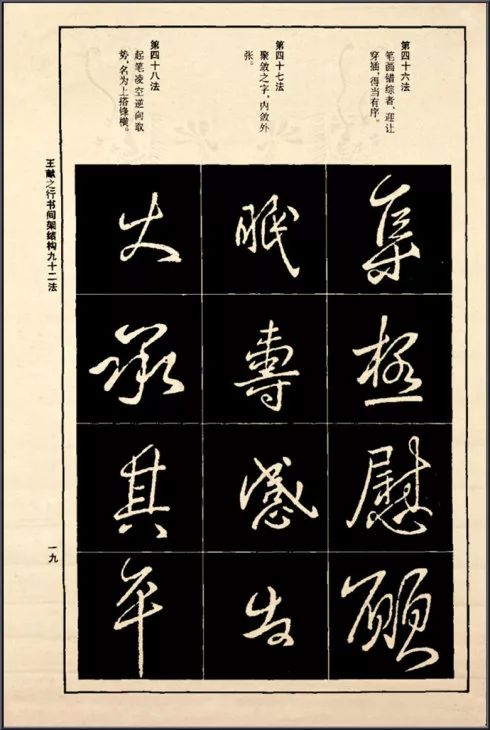 第四十六法
笔画错综者，迎让
穿插，得当有序。
集
極
慰
第四十七法
聚敛之字，内敛外
张。
眠
感
第四十八法
起笔凌空逆向取
势，名为上搭锋横。
承
其
平
王献之行书间架结构九十二法
一九